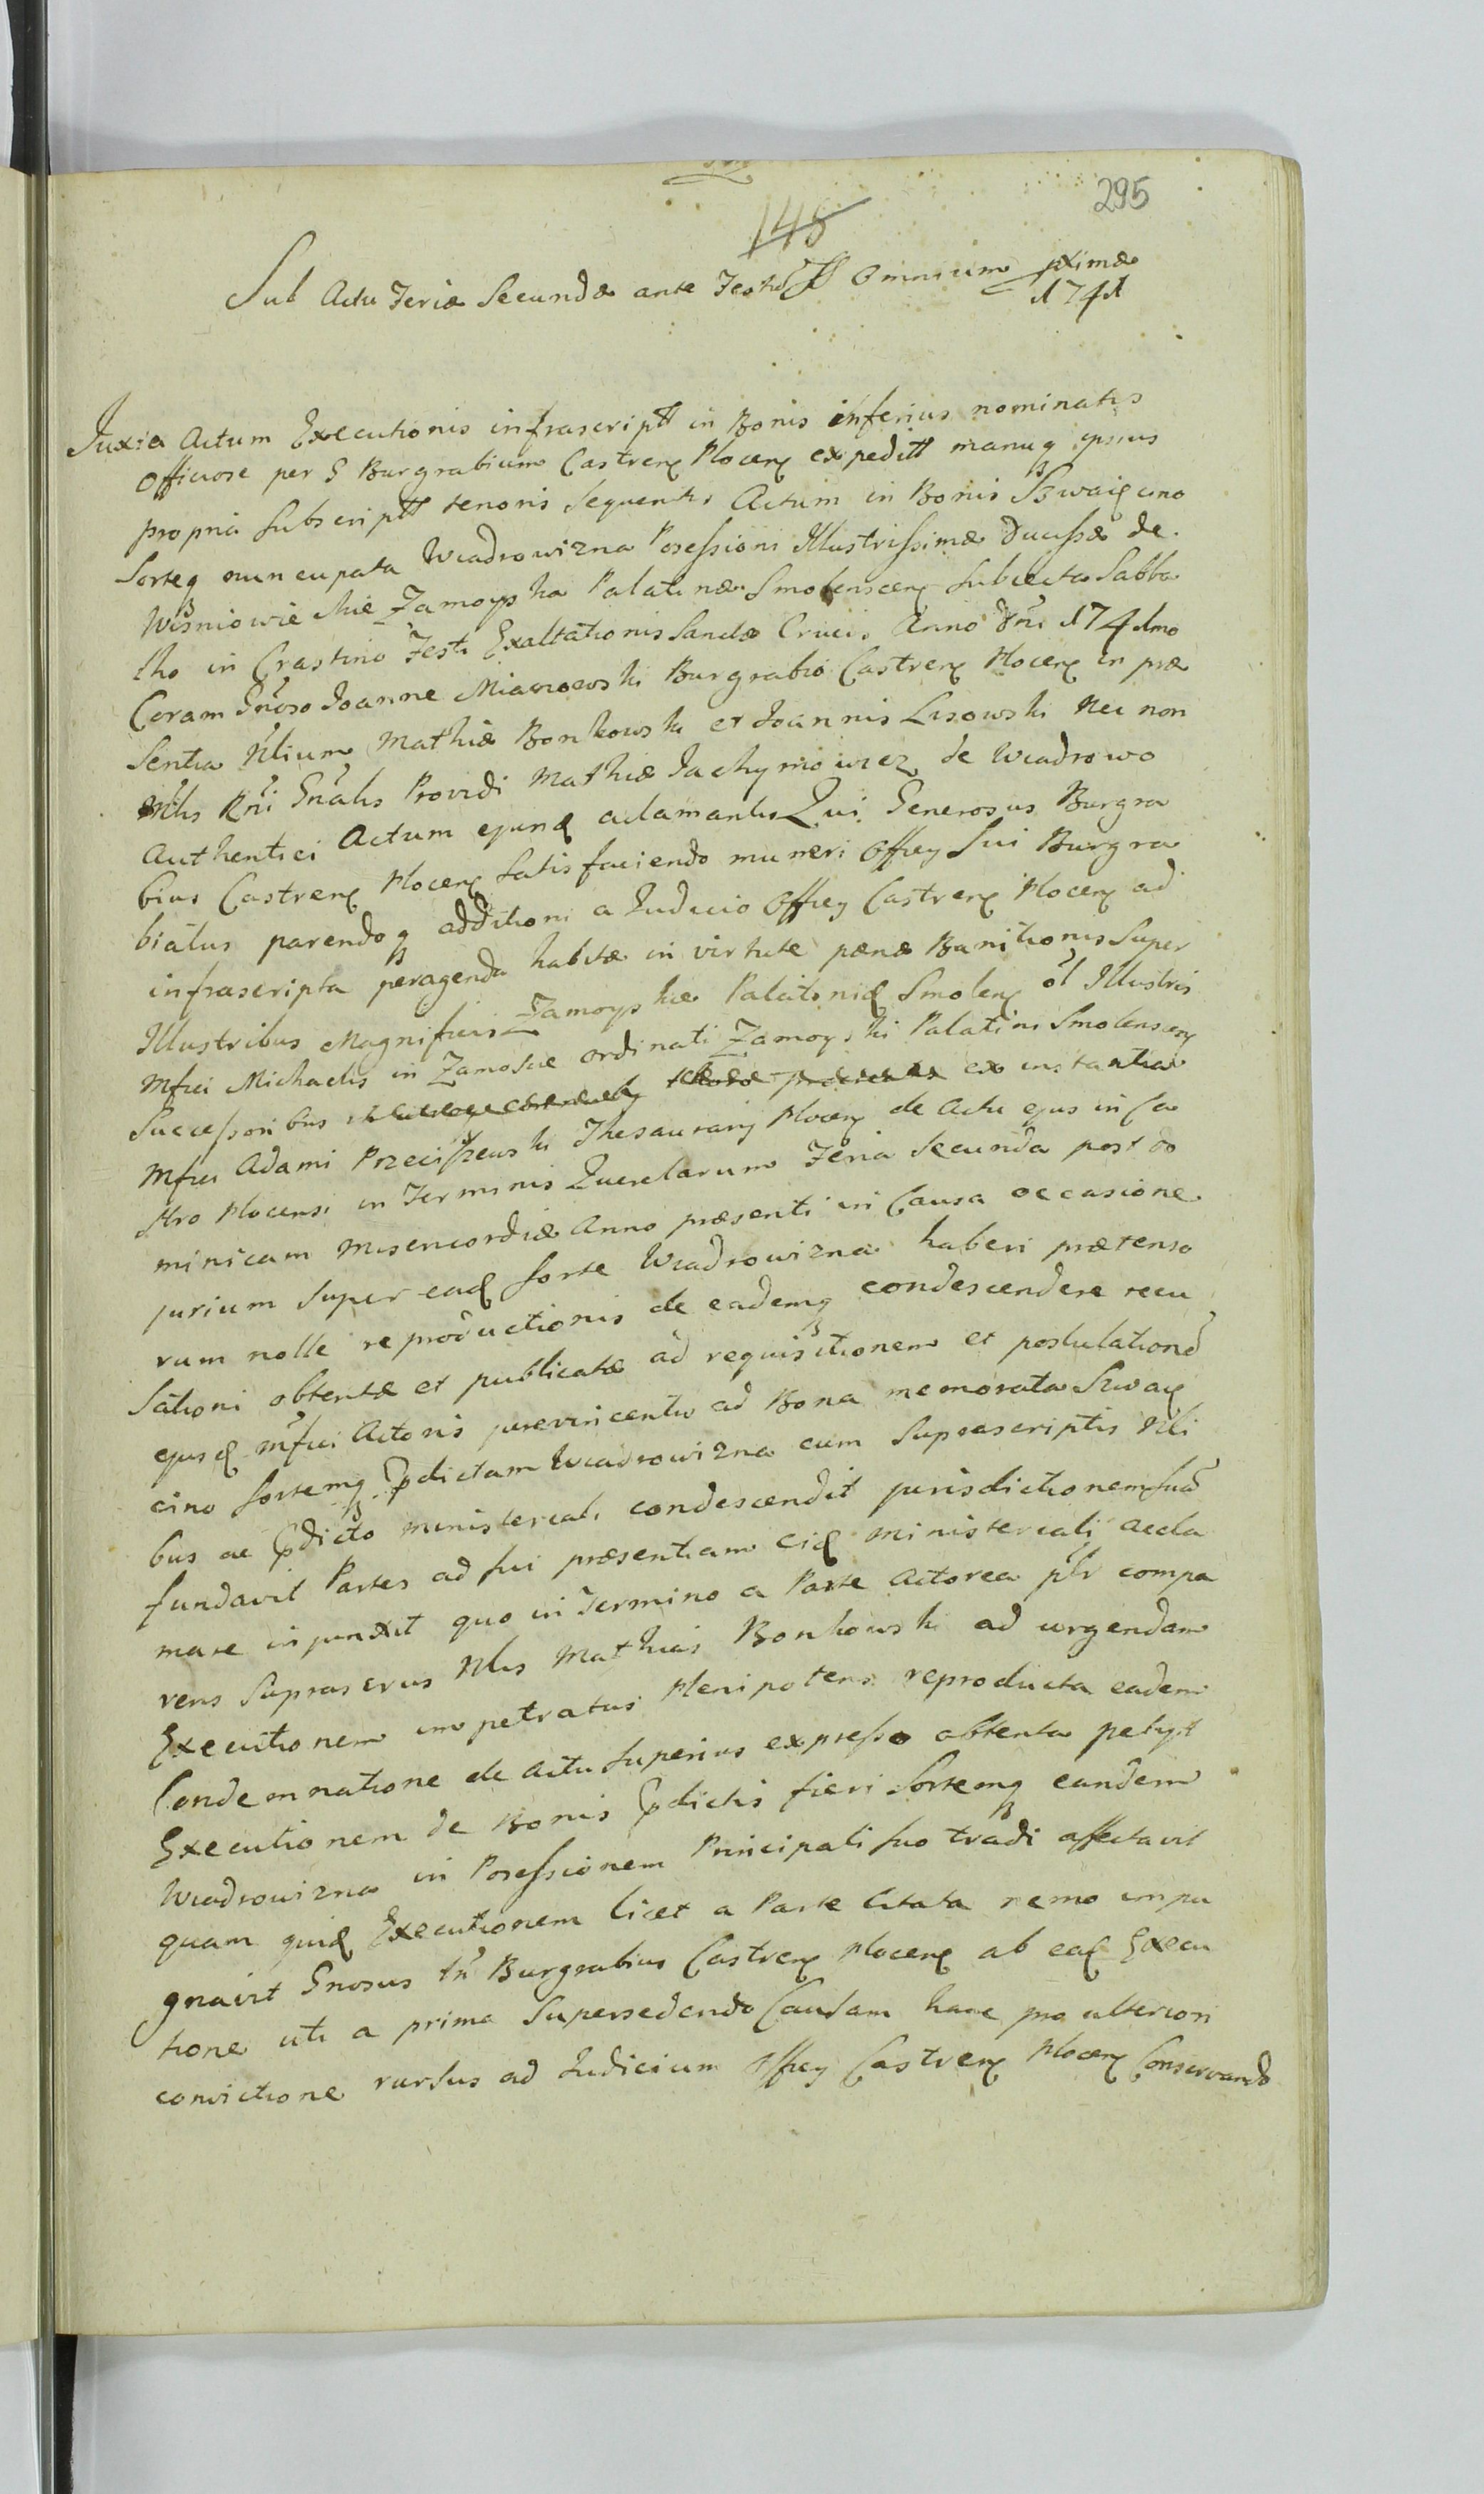 295
148
Sub Actu Feriæ Secundæ ante Festū SS Omnium pximæ
1741
Juxta Actum Executionis infrascriptt in Bonis inferius nominatis
Officiose per G Burgrabium Castren Plocen expeditt manuq ipsius
propria subscriptt tenoris sequentis Actum in Bonis Szwaięcino
Sorteq nuncupata Wiadrowizna Possessioni Illustrissimæ Ducissæ de
Wiśniowieckie Zamoyska Palatinæ Smolenscen subiecta Sabba
tho in Crastino Festi Exaltationis Sanctæ Crucis Anno Dni 1741mo
Coram Gnoso Joanne Mianowski Burgrabio Castren Plocen in præ
sentia Nlium Mathiæ Bonkowski et Joannis Lisowski Nec non
Mtlis Rni Gnalis Providi Mathiæ Jachymowicz de Wiadrowo
Authentici Actum ejund aclamantis Qui Generosus Burgra
bius Castren Plocen satisfaciendo muneri Officy sui Burgra
biatus parendoq additioni a Judicio Officy Castren Plocen ad
infrascripta peragenda habitæ in virtute pænæ Banitionis super
Illustribus Magnificis Zamoyskie Palatinid Smolen ol Illustris
Mfici Michaelis in Zamoscie ordinati Zamoyski Palatini Smolenscen
Successoribus ex instantia
Mfici Adami Przeciszewski Thesaurary Plocen de Actu ejus in Ca
stro Plocensi in Terminis Querelarum Feria Secunda post do
minicam Misericordiæ Anno præsenti in Causa occasione
jurium super ead sorte Wiadrowizna haberi prætenso
rum nolle reproductionis de eademq condescendere recu
sationi obtentæ et publicatæ ad requisitionem et postulationē
ejusd Mfici Actoris jurevincentis ad Bona memorata Szwaię
cino sortemq pdictam Wiadrowizna cum suprascriptis Nli
bus ac pdicto ministeriali condescendit jurisdictionem suā
fundavit Partes ad sui præsentiam eid ministeriali accla
mare injunxit quo in Termino a Parte Actorea plr compa
rens suprascrus Nlis Mathias Bonkowski ad urgendam
Executionem impetratus Plenipotens reproducta eadem
Condemnatione de Actu superius expresso obtenta petyt
Executionem de Bonis pdictis fieri sortemq eandem
Wiadrowizna in Possessionem Principali suo tradi affectavit
quam quid Executionem licet a Parte Citata nemo impu
gnavit Gnosus tn Burgrabius Castren Plocen ab ead Execu
tione uti a prima supersedendo Causam hanc pro ulteriori
convictione rursus ad Judicium Officy Castren Plocen Conservando